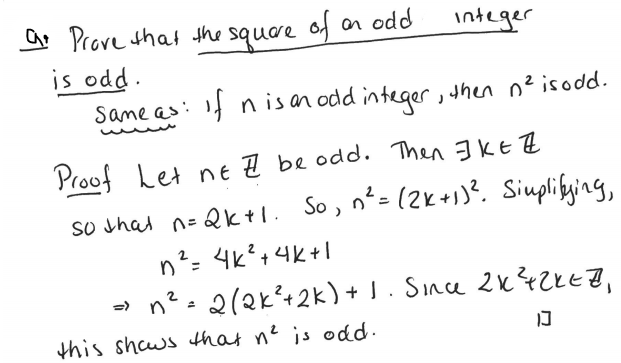 Q. Prove that the square of an odd integer
is odd.
Same as: if n is an odd integer, then n² is odd.
Proof Let n ∈ ℤ be odd. Then ∃ k ∈ ℤ
so that n = 2k+1. So, n² = (2k+1)². Simplifying,
n² = 4k² + 4k + 1
⇒ n² = 2(2k²+2k) + 1. Since 2k²+2k ∈ ℤ,
this shows that n² is odd. □